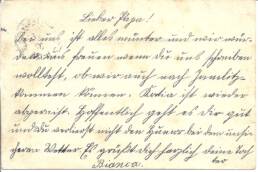 Lieber Papa!
Bei uns, ist alles munter und wir wür-
den uns freuen wenn du uns schreiben
wolltest, ob wir auch nach
kommen können. ist wieder
abgereist. Hoffentlich geht es dir gut
und du verlierst nicht den Humor bei dem
Wetter. Es grüßt dich herzlich deine Toch-
ter
Bianca.